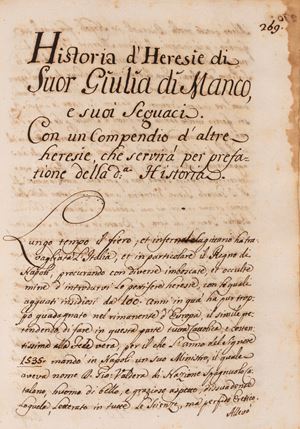 269.
Historia d'Heresie di
Suor Giulia di Manco,
e suoi Seguaci.
Con un Compendio d'altre
heresie, che servirà per prefa-
tione della d.ª Historia.
Lungo tempo il fiero, et infernal
l'Italia, et in particolare il Regno di
Napoli, procurando con diverse imboscate, et occulte
mine d'introdurvi le pestifere heresie, con le quale
da 100. anni in quà ha pur troppo
guadagnato nel rimanente d'Europa, il simile pre-
tendendo di fare in questa parte tutta Cattolica, e
della vera, per il che l'anno del Signore
1535. mandò in Napoli un suo Ministro, il quale
aveva nome D. Gio: Valdera di Nazione Spagnuola Ca-
talano, huomo di bello, e grazioso aspetto,
in tutte le Scienze, ma perfido